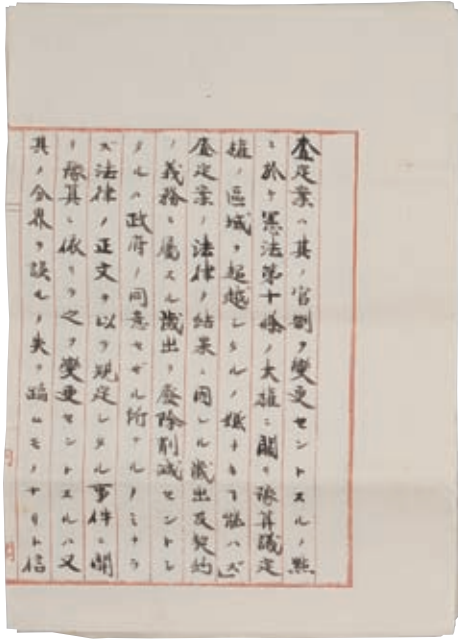 査定案ハ其ノ官制ヲ變更セントスルノ點
ニ於テ憲法第十條ノ大權ニ關リ豫算議定
權ノ區域ヲ超越シタルノ嫌ナキ能ハズ」
査定案ノ法律ノ結果ニ因レル歳出及契約
ノ義務ニ屬スル歳出ヲ廢除削減セントシ
タルハ政府ノ同意セザル所ナルノミナラ
ズ法律ノ正文ヲ以テ規定シタル事件ニ關
シ豫算ニ依リテ之ヲ變更セントスルハ又
其ノ分界ヲ誤ルノ失ヲ踏ムモノナリト信